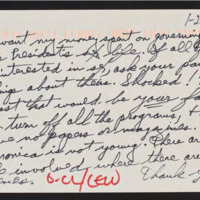 1-2
want my money spent on governing
Presidents sex life. Of all
interested in sex, ask your pa
hip about theirs. Shocked!
t that would be your f
turn off all the programs, t
no papers or magazines.
onica is not young. There are
involved where there are
Thank y
6-CL/CEW